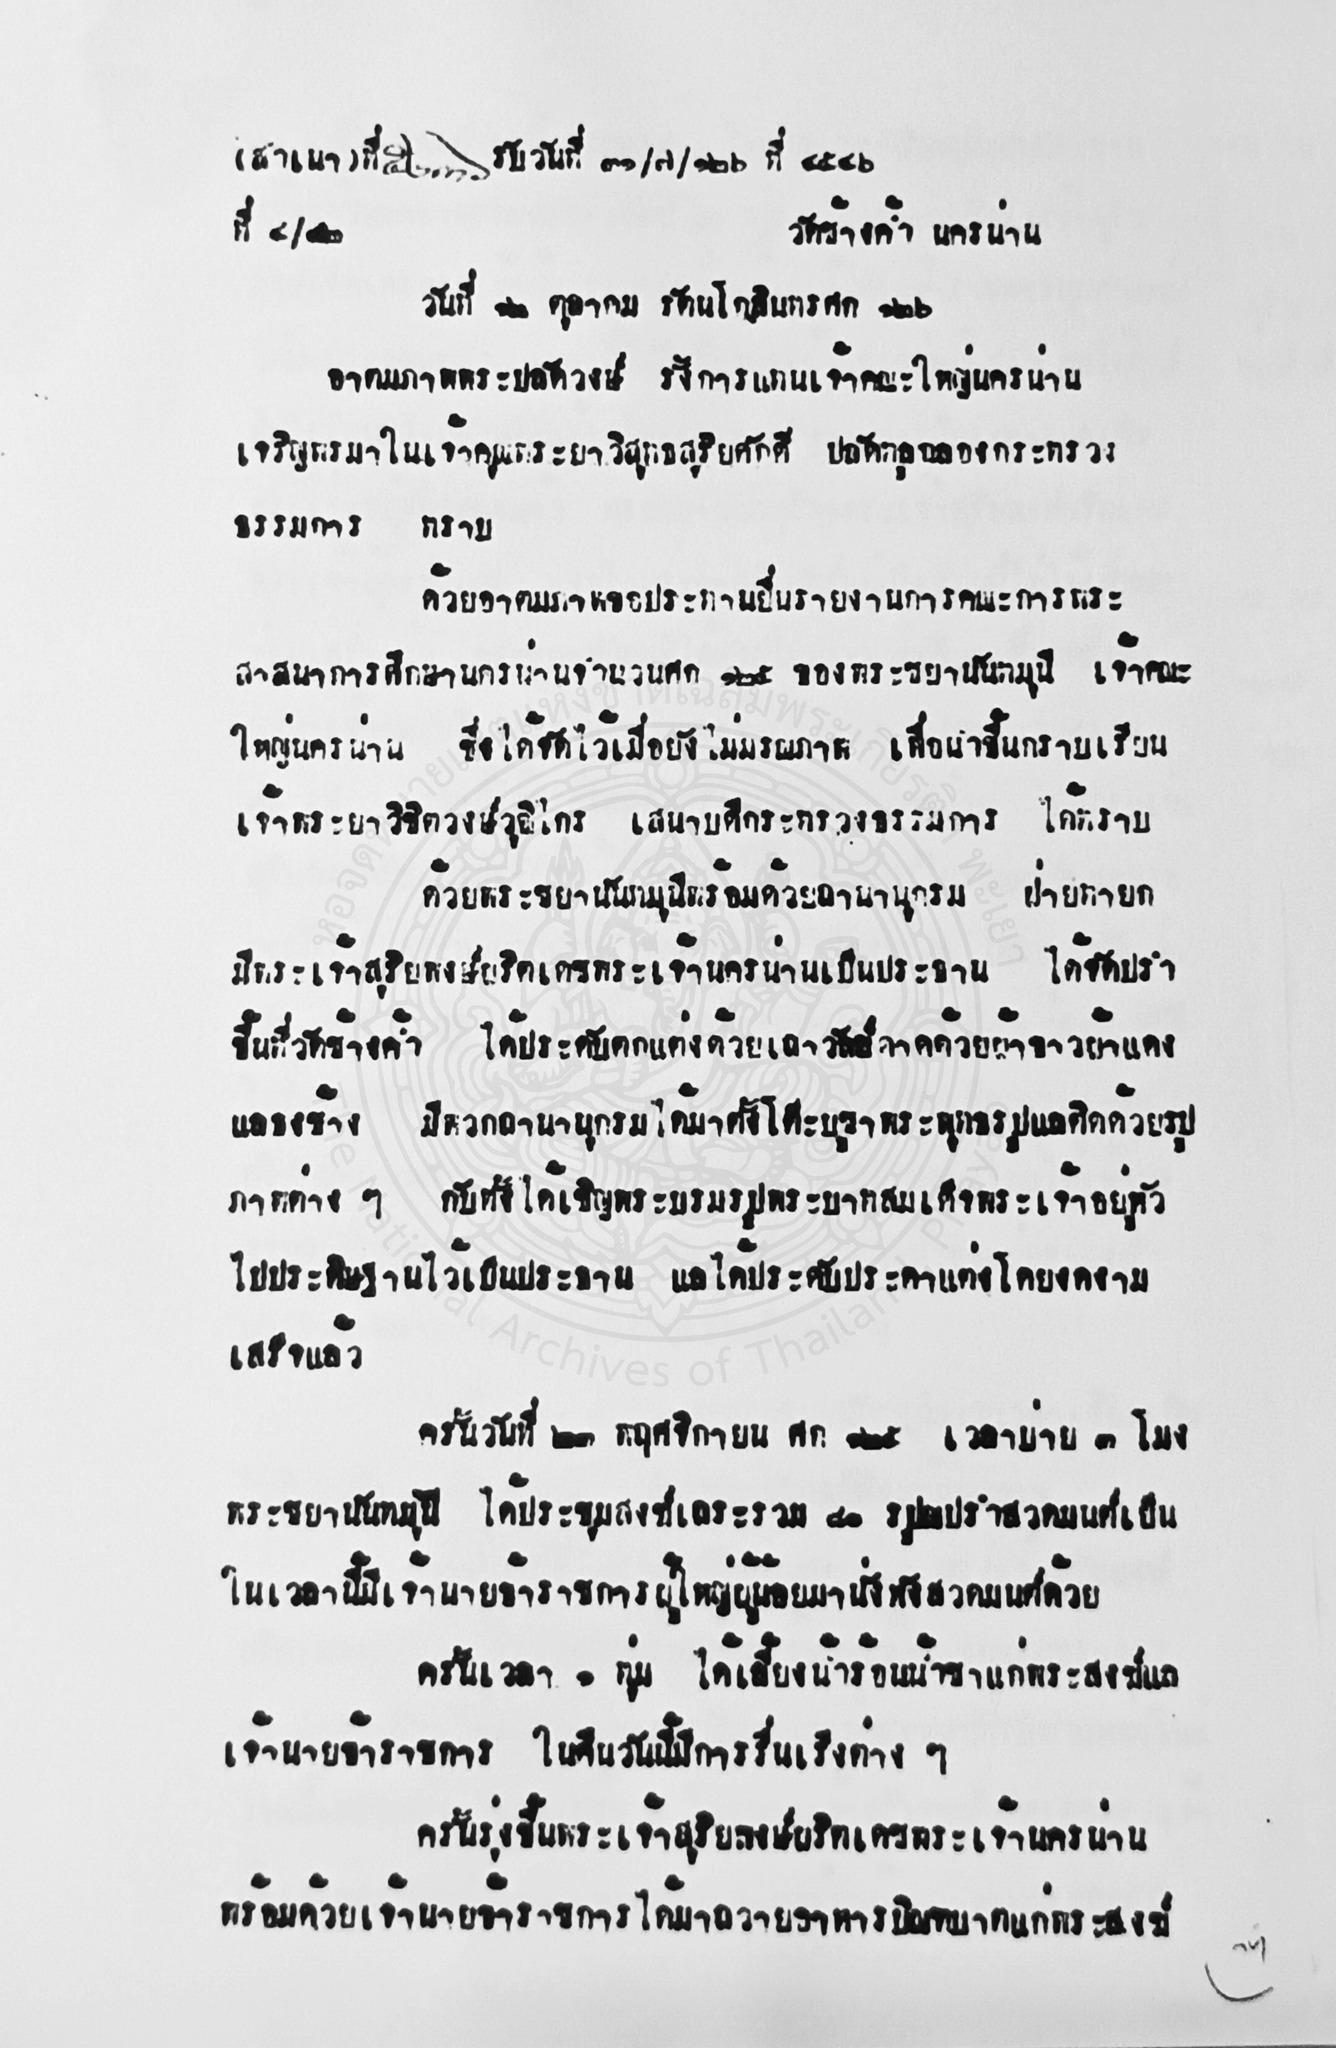 (สำเนา) ที่ รับวันที่ ๓๑/๗/๑๒๖ ที่ ๔๕๔๖
ที่ ๔/
วัดช้างค้ำ นครน่าน
วันที่ ๑๒ ตุลาคม รัตนโกสินทรศก ๑๒๖
อาตมภาพพระปลัดวงษ์ รั้งการแทนเจ้าคณะใหญ่นครน่าน
เจริญพรมาในเจ้าคุณพระยาวิสุทธสุริยศักดิ์ ปลัดทูลฉลองกระทรวง
ธรรมการ ทราบ
ด้วยอาตมภาพขอประทานยื่นรายงานการคณะการพระ
สาสนาการศึกษานครน่านจำนวนศก ๑๒๕ ของพระชยานันทมุนี เจ้าคณะ
ใหญ่นครน่าน ซึ่งได้จัดไว้เมื่อยังไม่มรณภาพ เพื่อนำขึ้นกราบเรียน
เจ้าพระยาวิชิตวงษ์วุฒิไกร เสนาบดีกระทรวงธรรมการ ได้ทราบ
ด้วยพระชยานันทมุนีพร้อมด้วยถานานุกรม ฝ่ายทายก
มีพระเจ้าสุริยพงษ์ผริตเดชพระเจ้านครน่านเป็นประธาน ได้จัดปรำ
ขึ้นที่วัดช้างค้ำ ได้ประดับตกแต่งด้วยเถาวัลย์ลาดด้วยผ้าขาวผ้าแดง
แลธงช้าง มีพวกถานานุกรมได้มาตั้งโต๊ะบูชาพระพุทธรูปแลติดด้วยรูป
ภาพต่าง ๆ กับทั้งได้เชิญพระบรมรูปพระบาทสมเด็จพระเจ้าอยู่หัว
ไปประดิษฐานไว้เป็นประธาน แลได้ประดับประดาแต่งโดยงดงาม
เสร็จแล้ว
ครั้นวันที่ ๒๓ พฤศจิกายน ศก ๑๒๕ เวลาบ่าย ๓ โมง
พระชยานันทมุนี ได้ประชุมสงฆ์เถระรวม ๔๐ รูป ปรำสวดมนต์เย็น
ในเวลานี้มีเจ้านายข้าราชการผู้ใหญ่ผู้น้อยมานั่งฟังสวดมนต์ด้วย
ครั้นเวลา ๑ ทุ่ม ได้เลี้ยงน้ำร้อนน้ำชาแก่พระสงฆ์แล
เจ้านายข้าราชการ ในคืนวันนี้มีการรื่นเริงต่าง ๆ
ครั้นรุ่งขึ้นพระเจ้าสุริยพงษ์ผริตเดชพระเจ้านครน่าน
พร้อมด้วยเจ้านายข้าราชการได้มาถวายอาหารบิณฑบาตแก่พระสงฆ์
หอจดหมายเหตุแห่งชาติเฉลิมพระเกียรติ พะเยา
The National Archives of Thailand